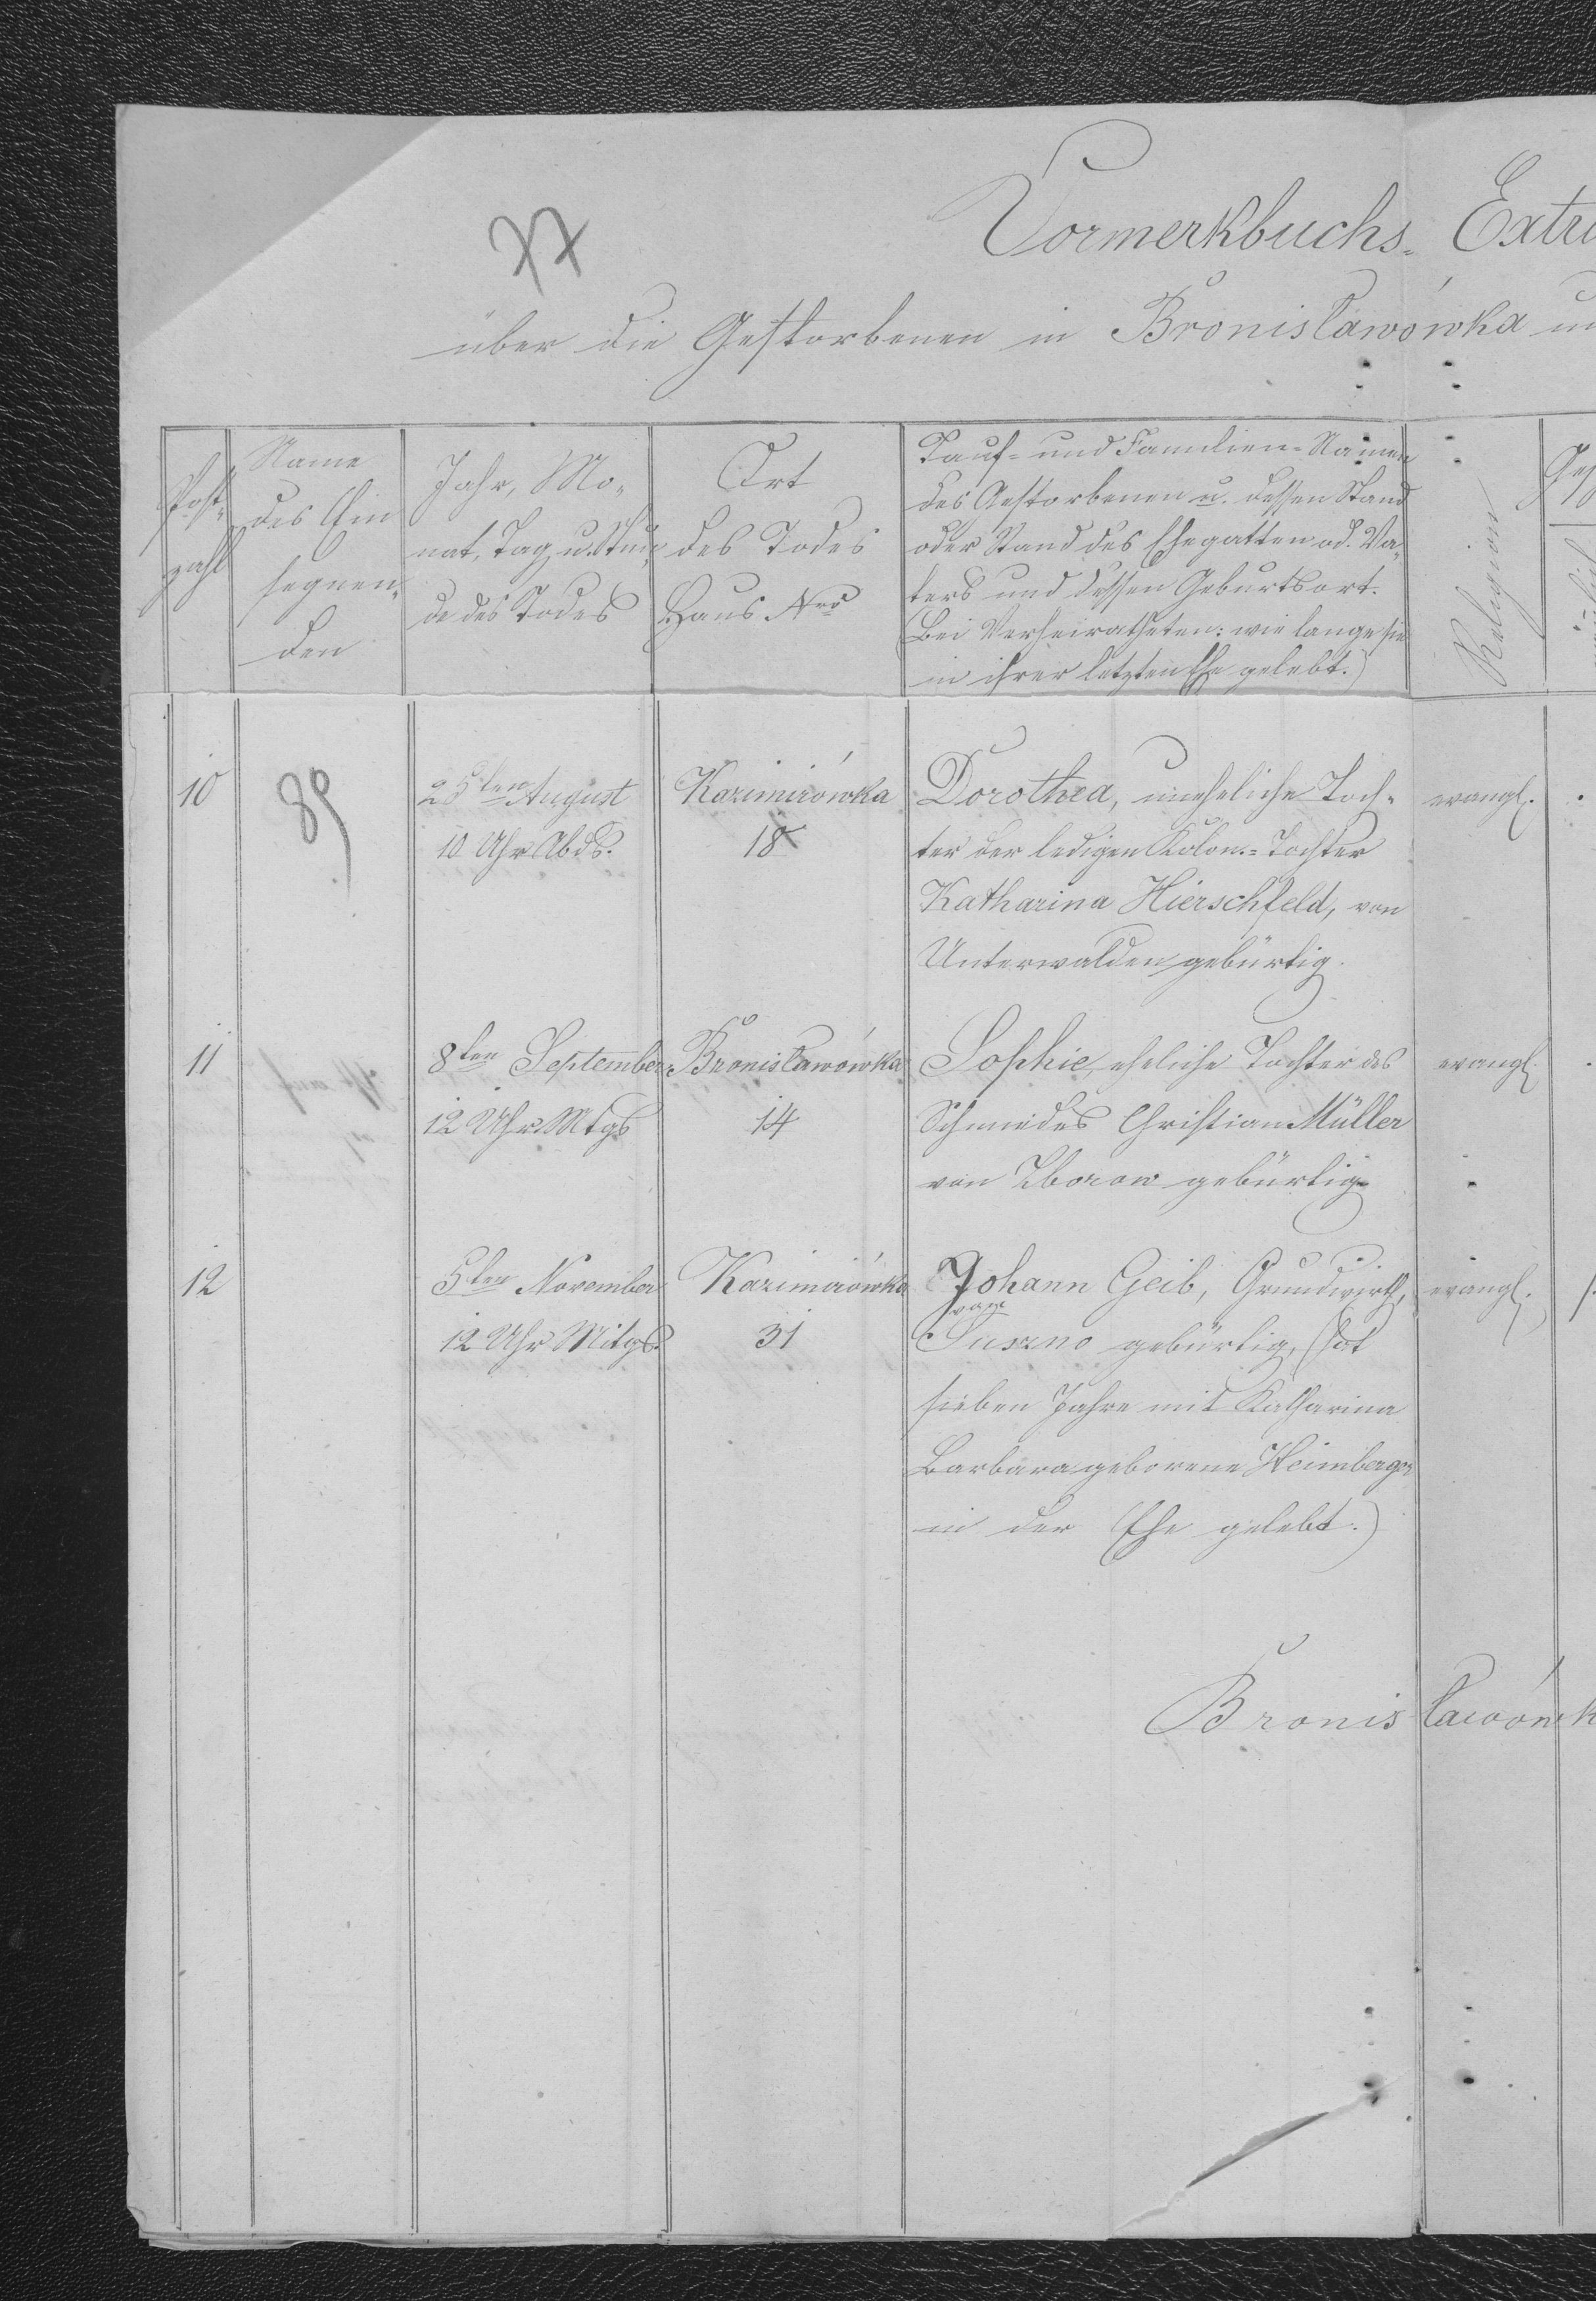 XX
Vormerkbuchs- Extra
über die Gestorbenen in Bronisławówka
Post-
zahl
Name
des Ein
segnen-
den
Jahr, Mo-
nat, Tag u. Stun-
de des Todes
Ort
des Todes
Haus Nro
Tauf- und Familien-Namen
des Gestorbenen u. dessen Stand
oder Stand des Ehegatten od. Va-
ters und dessen Geburtsort.
(Bei Verheiratheten: wie lange sie
in ihrer letzten Ehe gelebt.)
Religion
10
89
25ten August
10 Uhr Abds.
Kazimirówka
18
Dorothea, uneheliche Toch-
ter der ledigen Kolon.-Tochter
Katharina Hierschfeld, von
Unterwalden gebürtig.
evangl.
11
8ten September
12 Uhr Mtgs
Bronisławówka
14
Sophie, eheliche Tochter des
Schmiedes Christian Müller
von Zborow gebürtig
evangl.
12
5ten November
12 Uhr Mitgs.
Kazimirówka
31
Johann Geib, Grundwirth,
von
Suszno gebürtig, (hat
sieben Jahre mit Katharina
Barbara geborene Heimberger
in der Ehe gelebt.)
evangl.
Bronisławówk